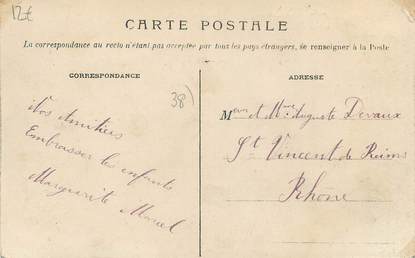 12€
CARTE POSTALE
La correspondance au recto n'étant pas acceptée par tous les pays étrangers, se renseigner à la Poste
CORRESPONDANCE
38)
Nos Amitiés
Embrasser les enfants
Marguerite Marcel
ADRESSE
Mr et Mme Auguste Devaux
St Vincent de Reins
Rhône